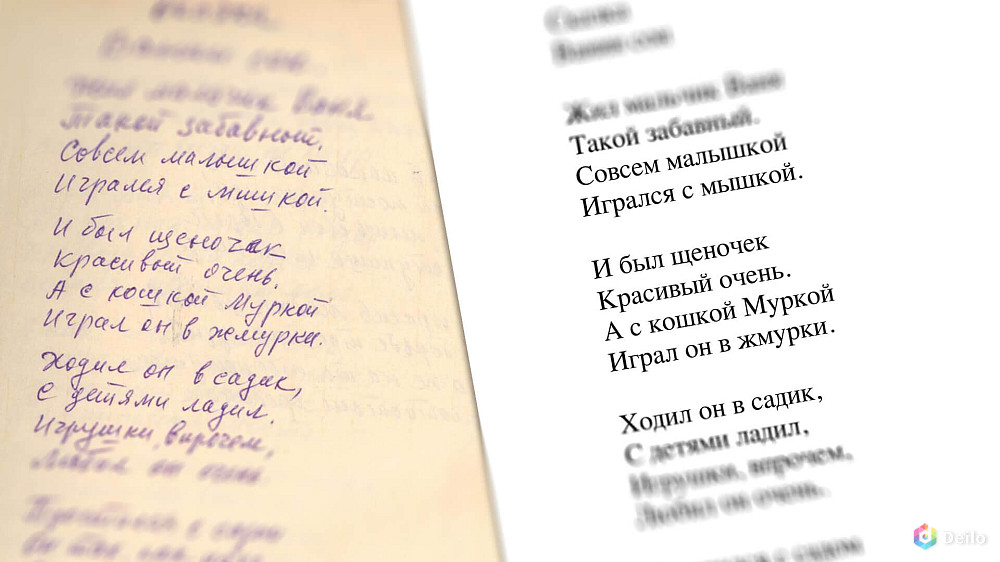 Ванин сон.
Жил мальчик Ваня
Такой забавный,
Совсем малышкой
Игрался с мишкой.
И был щеночек
Красивый очень.
А с кошкой Муркой
Играл он в жмурки.
Ходил он в садик,
С детями ладил.
Игрушки, впрочем,
Любил он очень.
Сказка
Ванин сон
Жил мальчик Ваня
Такой забавный.
Совсем малышкой
Игрался с мышкой.
И был щеночек
Красивый очень.
А с кошкой Муркой
Играл он в жмурки.
Ходил он в садик,
С детями ладил,
Игрушки, впрочем,
Любил он очень.
с садом
Deilo